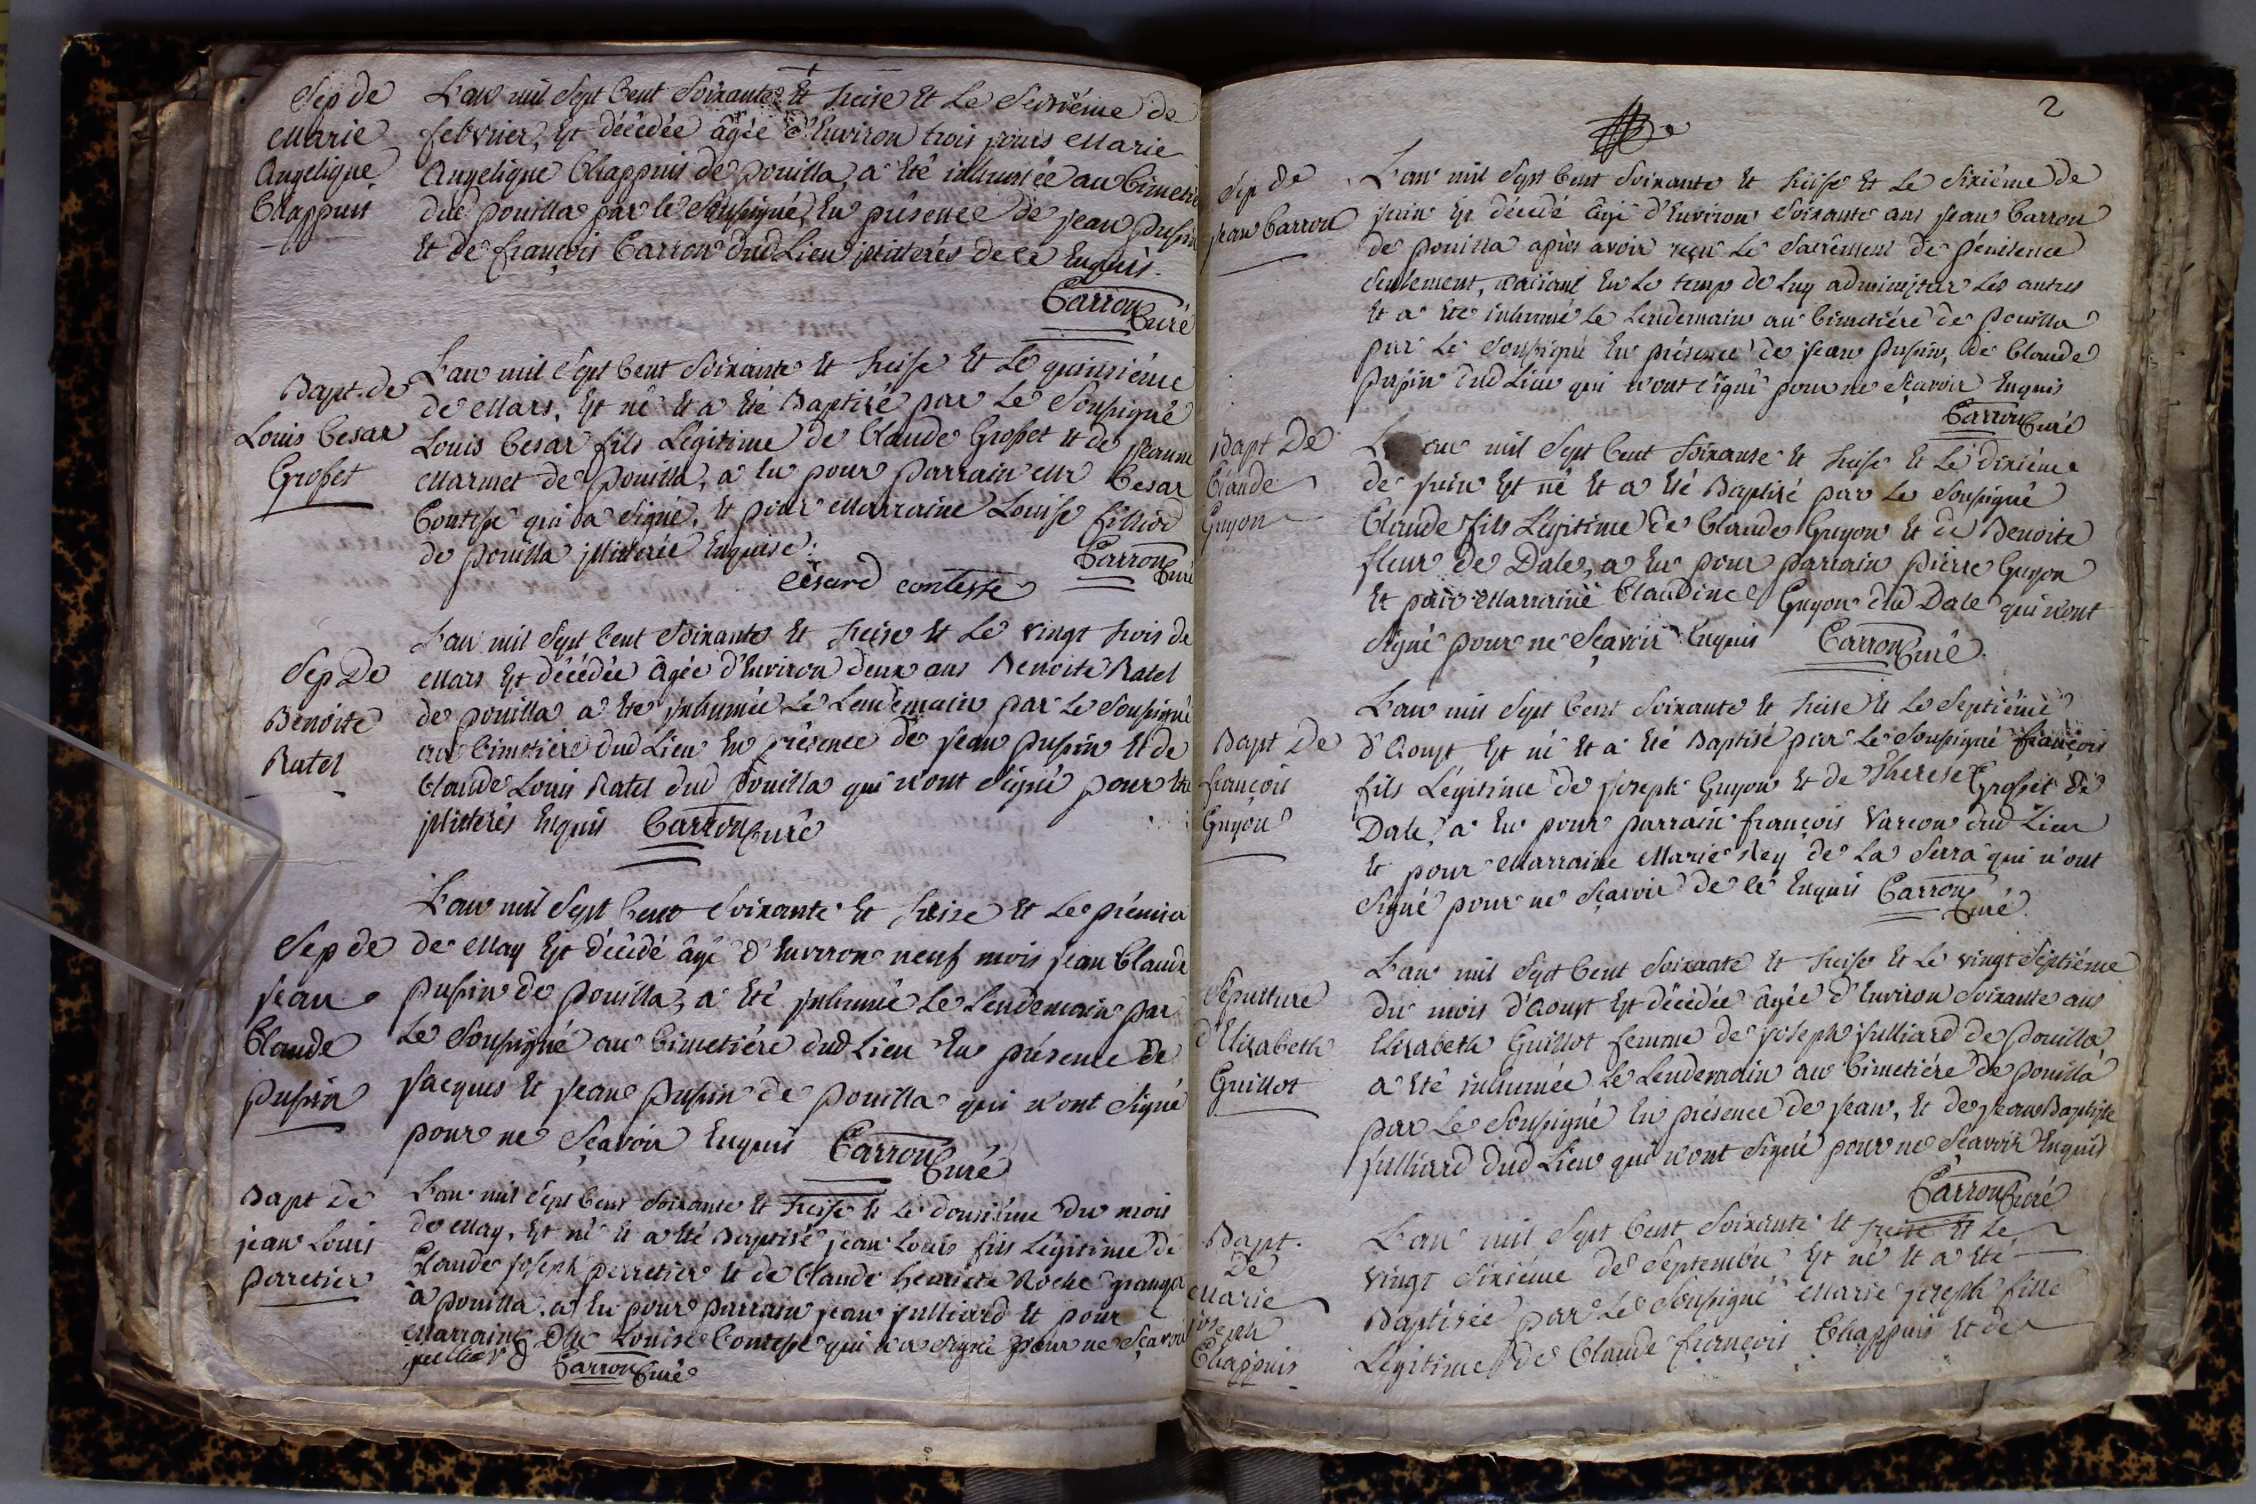 Sep de
Marie
Angelique
Chappuis
L'an mil Sept Cent Soixante Et treise Et Le Seizième de
febvrier, Est décédée âgée d'Environ trois jours Marie
Angelique Chappuis de pouilla, a Eté inhumée au Cimetière
dud pouilla par le Soussigné, En présence de jean pupin
Et de françois Carron dud Lieu jllitterés de ce Enquis.
Carron Curé
Bapt. de
Louis Cesar
Grosset
L'an mil Sept Cent Soixante Et treise Et Le quinsiéme
de Mars, Est né Et a Eté Baptisé par Le Soussigné
Louis Cesar fils Légitime de Claude Grosset Et de jeanne
Marmet de pouilla, a Eu pour parrain Mr Cesar
Contesse qui a signé, Et pour Marraine Louise filliod
de pouilla jllitterée Enquise.
Carron Curé
César contesse
Sep De
Benoite
Ratel
L'an mil Sept Cent Soixante Et treise Et Le vingt trois de
Mars Est décédée âgée d'Environ deux ans Benoite Ratel
de pouilla a Eté jnhumée Le Lendemain par Le Soussigné
au Cimetière dud Lieu En présence de jean pupin Et de
Claude Louis Ratel dud pouilla qui n'ont signé pour Etre
jllitterés Enquis Carron Curé
Sep de
jean
Claude
pupin
L'an mil Sept Cent Soixante Et treise Et Le prémier
de May Est décédé âgé d'Environ neuf mois jean Claude
pupin de pouilla, a Eté jnhumé Le Lendemain par
Le Soussigné au Cimetiére dud Lieu En présence de
jacques Et jean pupin de pouilla qui n'ont signé
pour ne Sçavoir Enquis Carron Curé
Bapt de
jean Louis
perretier
L'an mil Sept Cent Soixante Et treise Et Le dousiéme Du mois
de May, Est né Et a Eté Baptisé jean Louis fils Légitime de
Claude joseph perretier Et de Claude henriete Roche granger
à pouilla, a Eu pour parrain jean julliard Et pour
Marraine Dlle Louise Contesse qui n'a signé pour ne Sçavoir
julliard Carron Curé
2
Sep de
jean Carron
L'an mil Sept Cent Soixante Et treise Et Le Sixiéme de
juin Est décédé âgé d'Environ Soixante ans jean Carron
de pouilla après avoir reçu Le Sacrement de pénitence
Seulement, n'aiant Eu Le temps de Luy administrer Les autres
Et a Eté inhumé Le Lendemain au Cimetiére de pouilla
par Le Soussigné En présence de jean pupin, de Claude
pupin dud Lieu qui n'ont signé pour ne Sçavoir Enquis
Carron Curé
Bapt De
Claude
Guyon
L'an mil Sept Cent Soixante Et treise Et Le dixiéme
de juin Est né Et a Eté Baptisé par Le Soussigné
Claude fils Légitime de Claude Guyon Et de Benoite
fleur de Dale, a Eu pour parrain pierre Guyon
Et pour Marraine Claudine Guyon dud Dale qui n'ont
Signé pour ne Sçavoir Enquis Carron Curé
Bapt De
françois
Guyon
L'an mil Sept Cent Soixante Et treise Et Le Septiéme
d'Aoust Est né Et a Eté Baptisé par Le Soussigné françois
fils Légitime de joseph Guyon Et de Therese Grosset de
Dale, a Eu pour parrain françois Varcon dud Lieu
Et pour Marraine Marie Rey de La Serra qui n'ont
Signé pour ne Sçavoir de ce Enquis Carron Curé
Sépulture
d'Elisabeth
Guillot
L'an mil Sept Cent Soixante Et treise Et Le vingt Septiéme
du mois d'Aoust Est décédée âgée d'Environ Soixante ans
Elisabeth Guillot femme de joseph julliard de pouilla
a Eté inhumée Le Lendemain au Cimetiére de pouilla
par Le Soussigné En présence de jean, Et de jean Baptiste
julliard dud Lieu qui n'ont signé pour ne Sçavoir Enquis
Carron Curé
Bapt.
De
Marie
joseph
Chappuis
L'an mil Sept Cent Soixante Et treise Et Le
vingt Sixiéme de Septembre Est né Et a Eté
Baptisée par Le Soussigné Marie joseph fille
Légitime de Claude françois Chappuis Et de